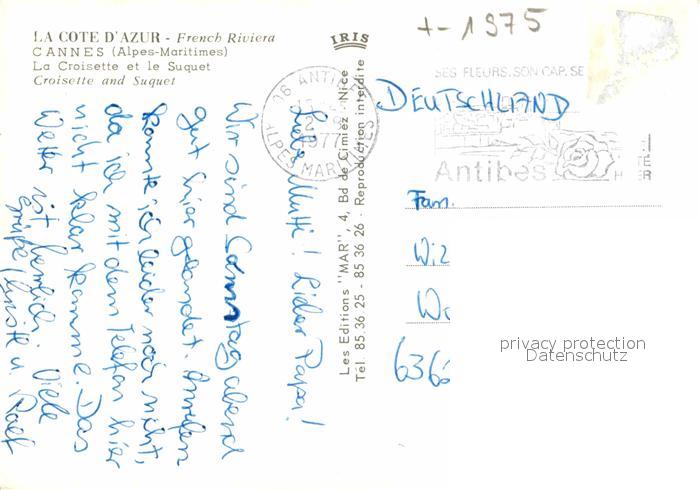 LA COTE D'AZUR - French Riviera
CANNES (Alpes-Maritimes)
La Croisette et le Suquet
Croisette and Suquet
IRIS
+-1975
Liebe Mutti! Lieber Papa!
Wir sind Samstag abend
gut hier gelandet. Anrufen
konnte ich leider noch nicht,
da ich mit dem Telefon hier
nicht klar komme. Das
Wetter ist herrlich. Viele
Grüße u. Ralf
Les Editions "MAR", 4, Bd de Cimiez - Nice
Tél. 85.36 25 - 85 36 26 - Reproduction interdite
06 ANTIBES
1977
ALPES MARITIMES
SES FLEURS. SON CAP. SE
Antibes
DEUTSCHLAND
Fam.
Wiz
636
privacy protection
Datenschutz